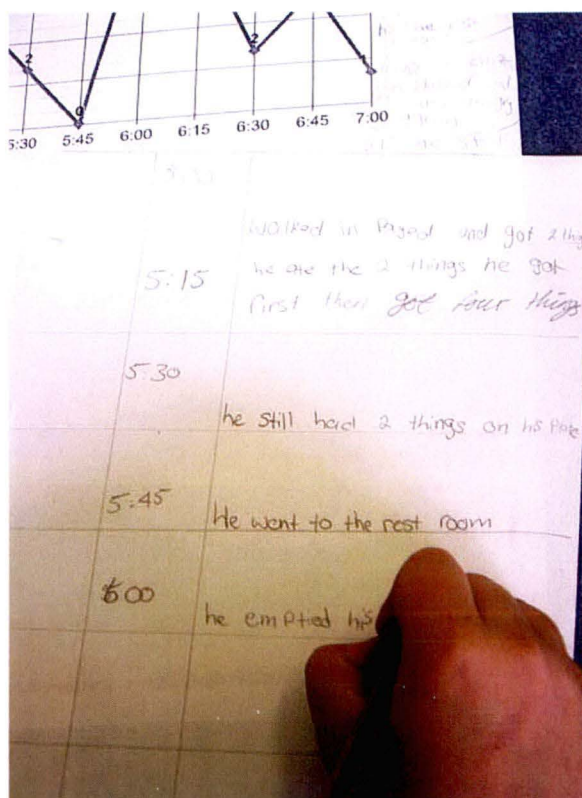 2
0
2
1
5:30 5:45 6:00 6:15 6:30 6:45 7:00
walked in Payed and got 2 thi
5:15 he ate the 2 things he got
first then got four things
5:30
he still had 2 things on his Plate
5:45 He went to the rest room
600 he emptied his